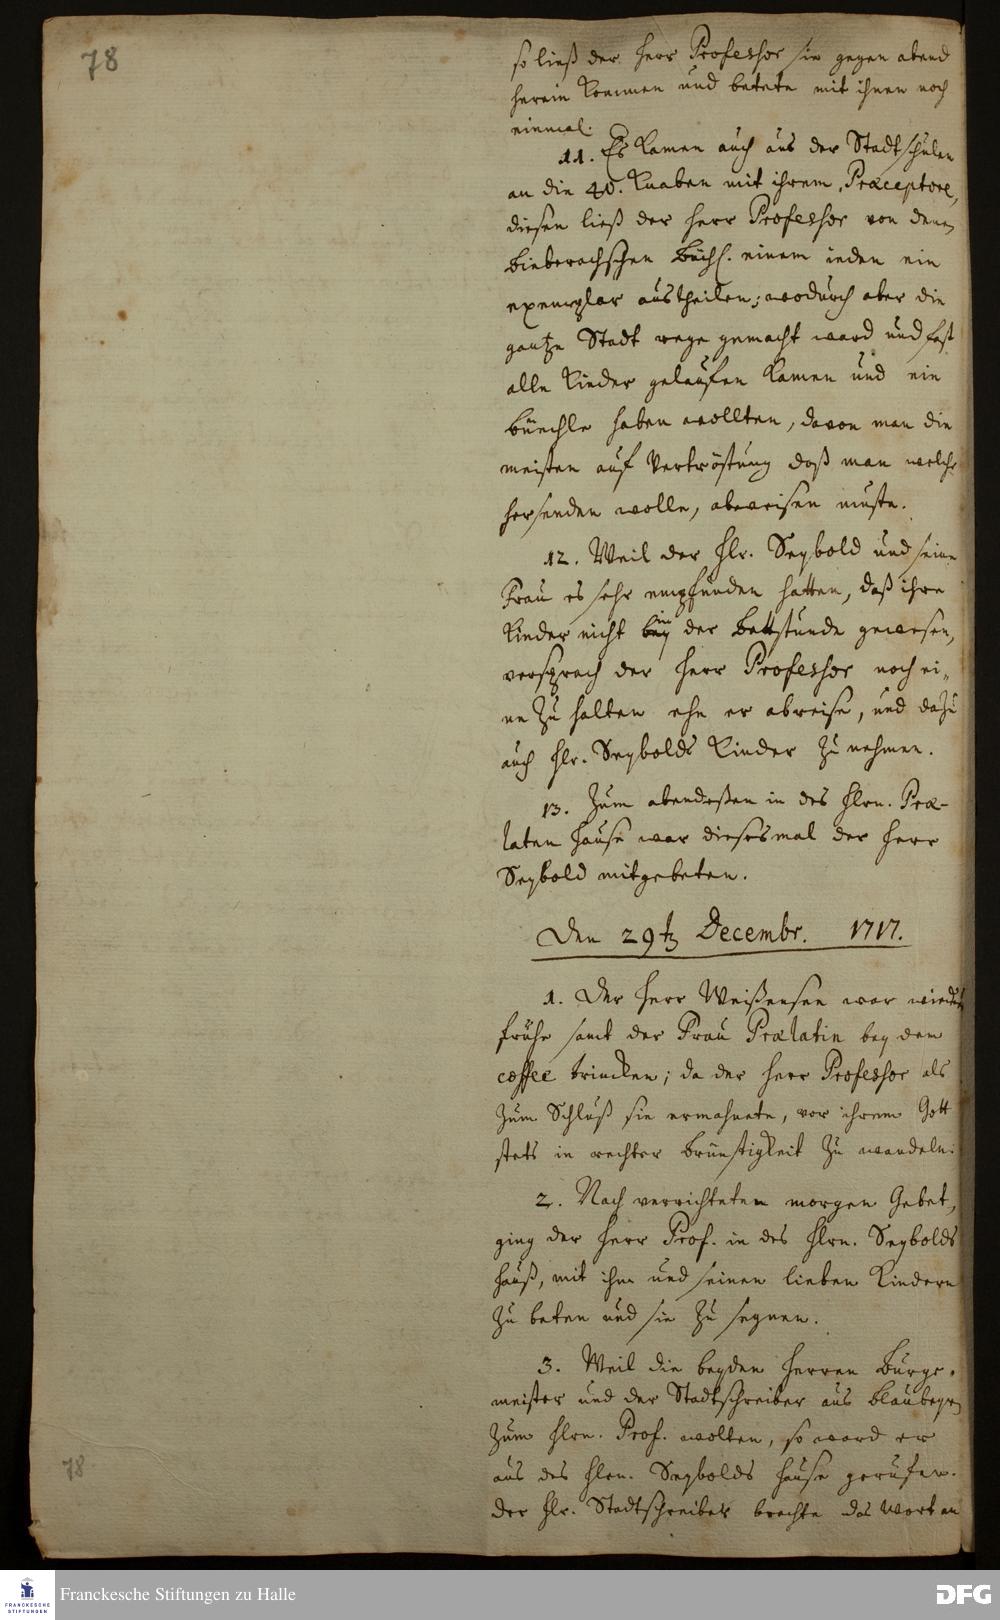 78
so ließ der Herr Professor sie gegen abend
herein kommen und betete mit ihnen noch
einmal.
11. Es kamen auch aus der Stadtschulen
an die 40. Knaben mit ihrem Præceptore,
diesen ließ der Herr Professor von denen
Bieberachschen Büchl. einem ieden ein
exemplar austheilen; wodurch aber die
gantze Stadt rege gemacht ward und fast
alle Kinder gelauffen kamen und ein
büechle haben wollten, davon man die
meisten auf Vertröstung daß man welche
hersenden wolle, abweisen muste.
12. Weil der Hr. Seybold und seine
Frau es sehr empfunden hatten, daß ihre
Kinder nicht in der Bettstunde gewesen,
versprach der Herr Professor noch ei-
ne zu halten ehe er abreise, und dazu
auch Hr. Seybolds Kinder zu nehmen.
13. Zum abendeßen in des Hrn. Præ-
laten Hause war diesesmal der Herr
Seybold mitgebeten.
Den 29t Decembr. 1717.
1. Der Herr Weißensee war wieder
frühe samt der Frau Prælatin bey dem
coffee trincken; da der Herr Professor als
zum Schluß sie ermahnete, vor ihrem Gott
stets in rechter brünstigkeit zu wandeln.
2. Nach verrichteten morgen Gebet,
ging der Herr Prof. in des Hrn. Seybolds
Hauß, mit ihm und seinen lieben Kindern
zu beten und sie zu segnen.
3. Weil die beyden Herren Burge-
meister und der Stadtschreiber aus Blaubeyrn
zum Hrn. Prof. wolten, so ward er
aus des Hrn. Seybolds Hause gerufen.
der Hr. Stadtschreiber brachte das Wort an
78
FRANCKESCHE STIFTUNGEN
Franckesche Stiftungen zu Halle
DFG